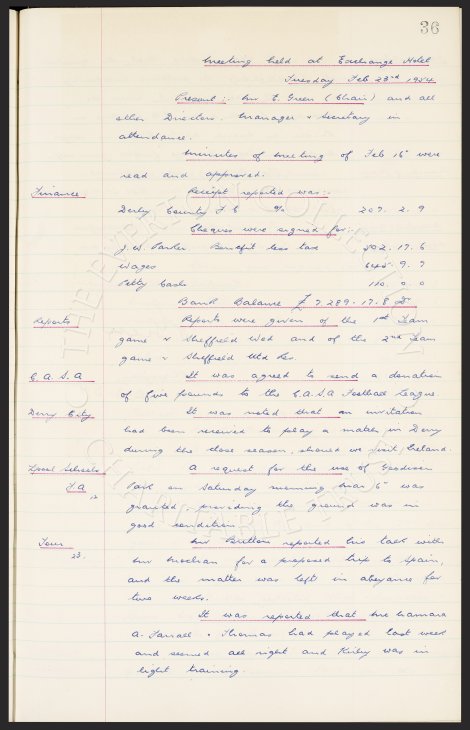 36
Meeting held at Exchange Hotel
Tuesday Feb 23rd 1954
Present:- Mr E. Green (Chair) and all
other Directors. Manager & Secretary in
attendance.
Minutes of Meeting of Feb 16th were
read and approved.
Finance. Receipt reported was:-
Derby County F.C. 207. 2. 9
Cheques were signed for:-
J.W. Parker Benefit less tax 502. 17. 6
Wages 645. 9. 7
Petty Cash
Bank Balance £7,289. 17. 8 Dr
Reports Reports were given of the 1st Team
game v Sheffield Wed and of the 2nd Team
game v Sheffield Utd Res.
C.A.S.A It was agreed to send a donation
of five pounds to the C.A.S.A Football League.
Derry City It was noted that an invitation
had been received to play a match in Derry
during the close season, should we visit Ireland.
L'pool Schools A request for the use of Goodison
F.A. Park on Saturday morning Mar 6th was
granted, providing the ground was in
good condition.
Tour Mr Britton reported his talk with
23. Mr for a proposed trip to Spain,
and the matter was left in abeyance for
two weeks.
It was reported that McNamara
A. Farrall & Thomas had played last week
and seemed all right and Kirby was in
light training.
THE EVERTON COLLECTION
CHARITABLE TRUST